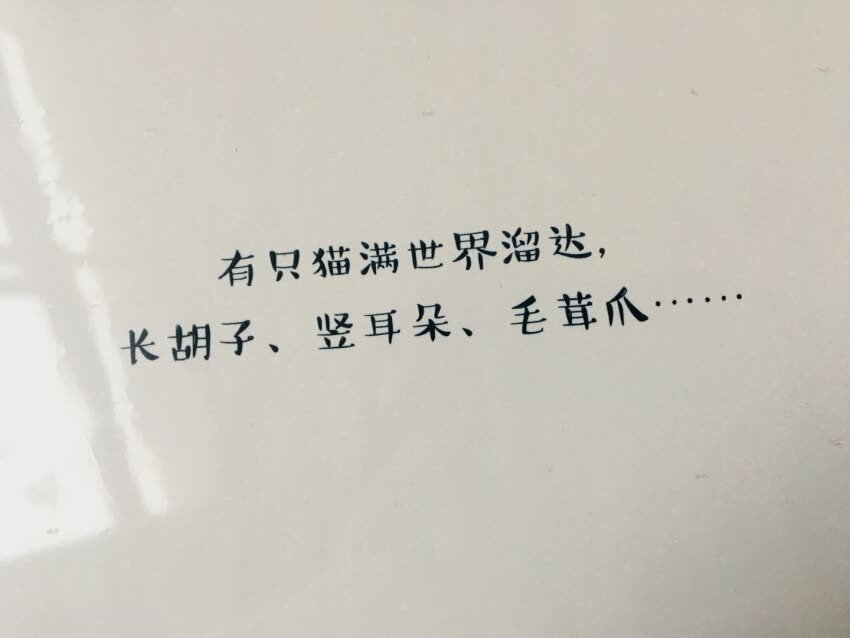 有只猫满世界溜达，
长胡子、竖耳朵、毛茸爪……